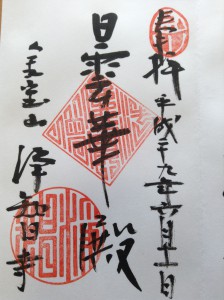 奉拝 平成廿九年六月十一日
曇華殿
金宝山 浄智寺